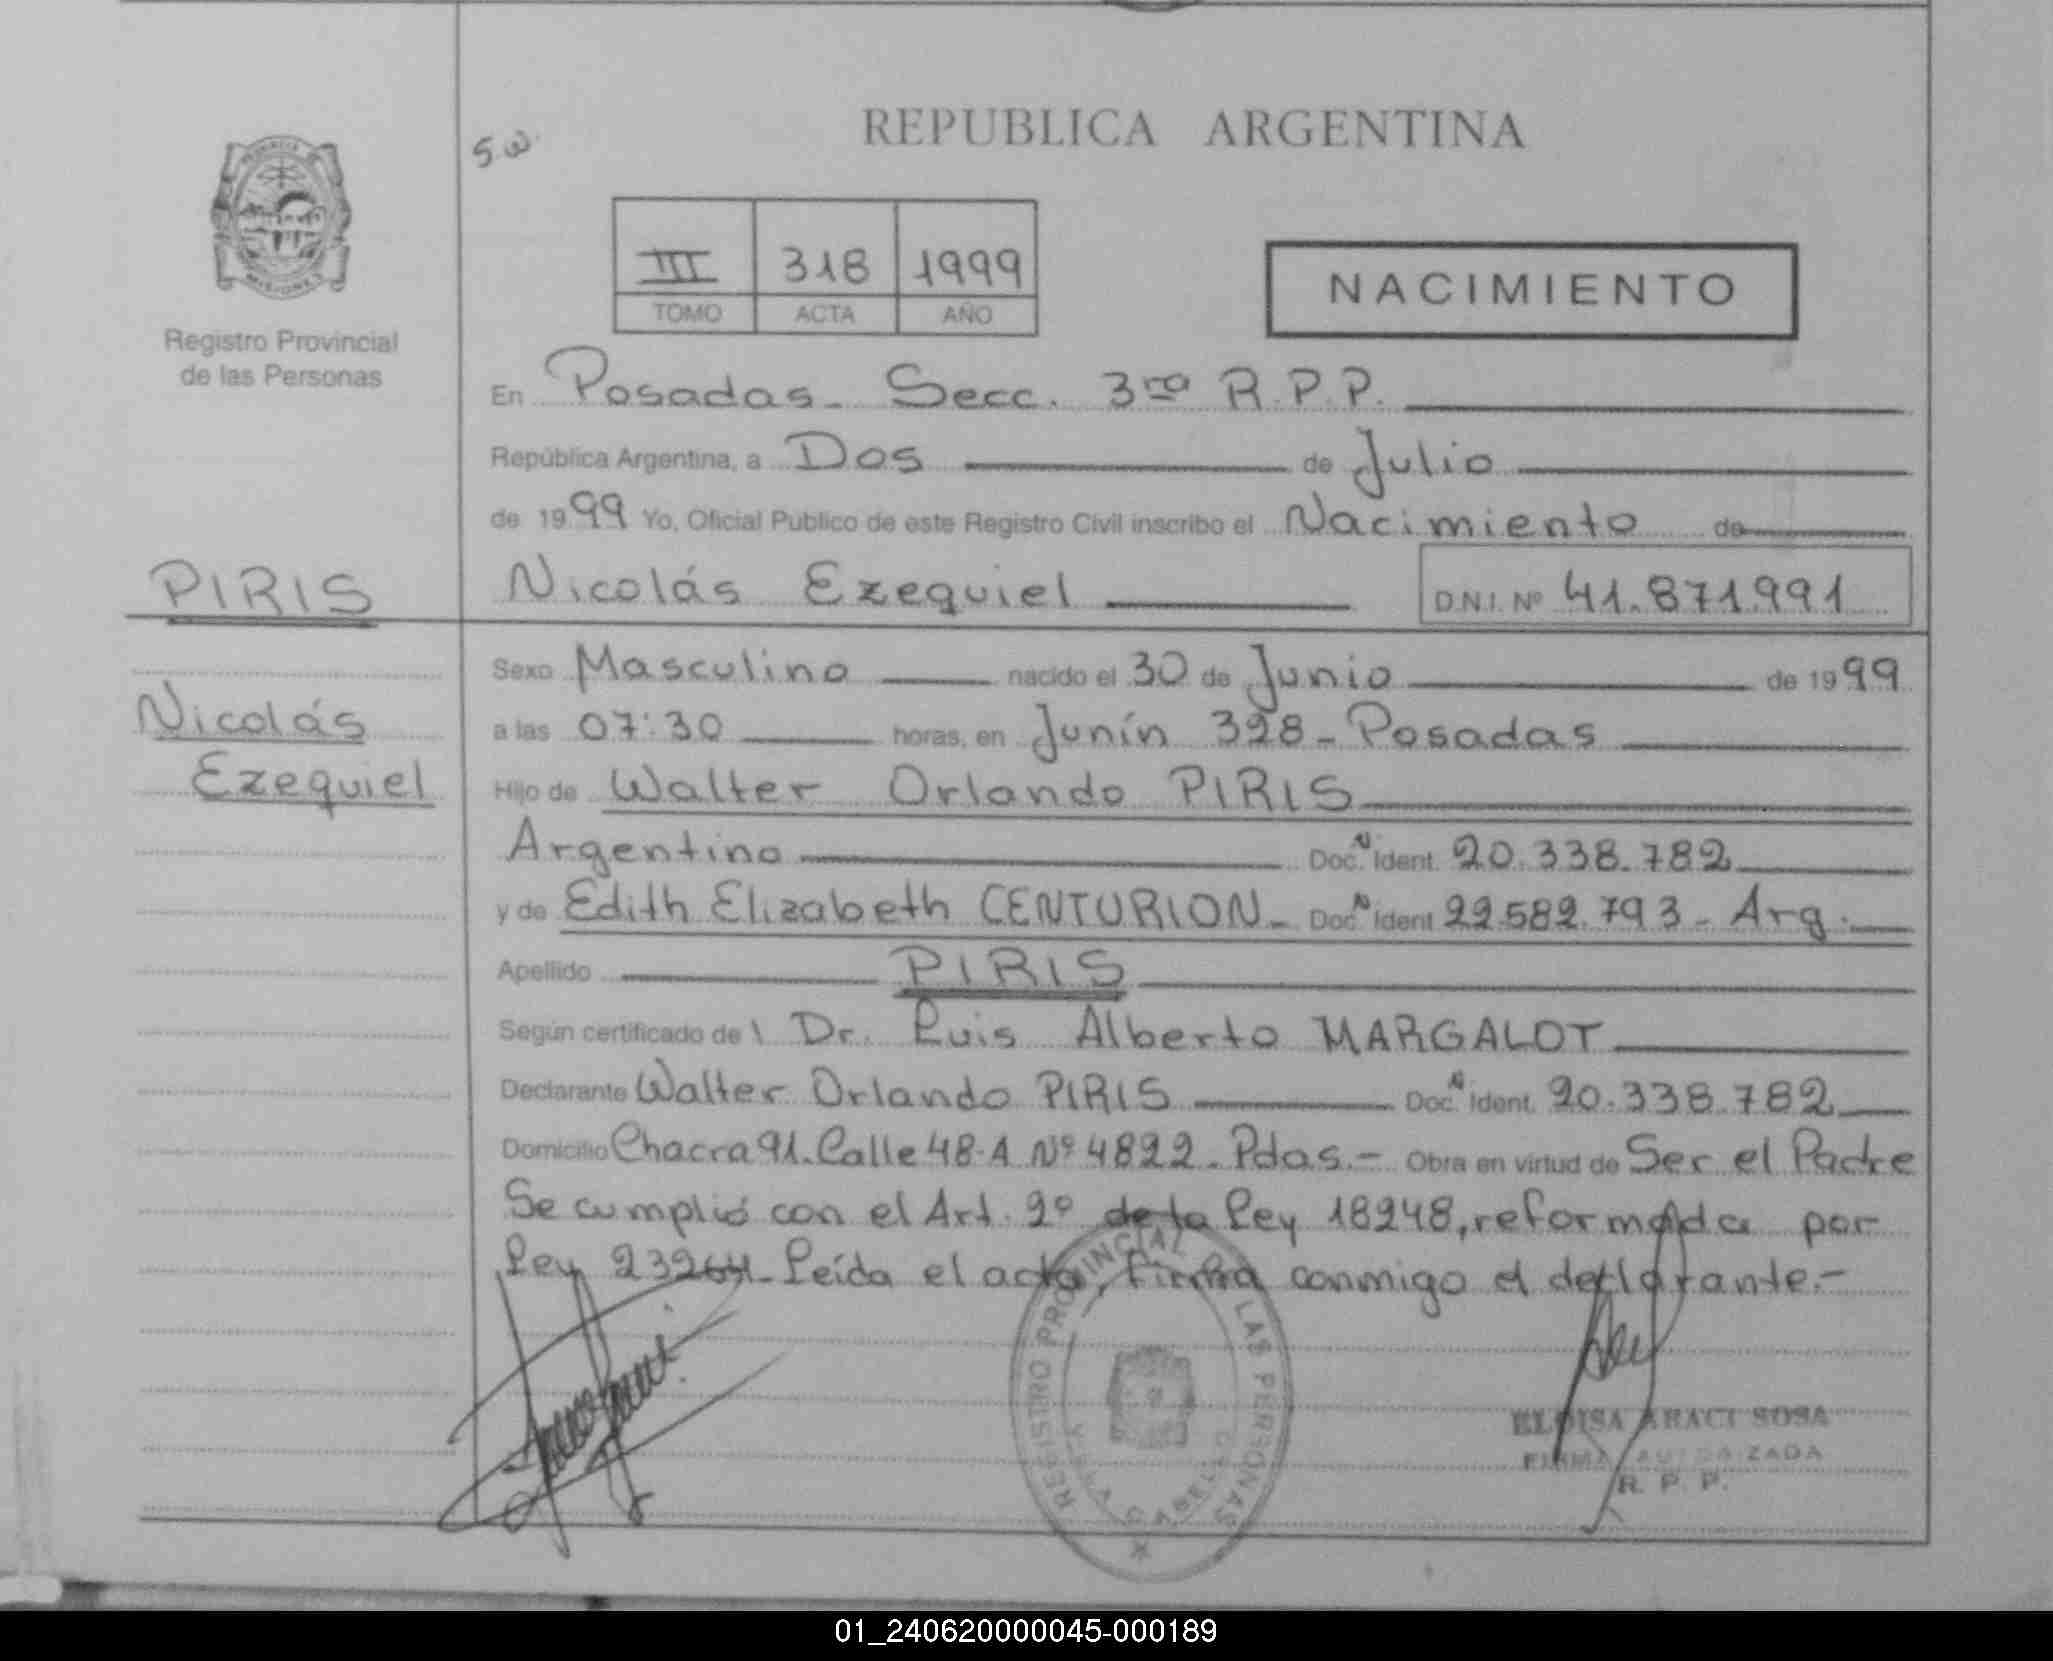 REPUBLICA ARGENTINA
S.W.
PROVINCIA
MISIONES
Registro Provincial
de las Personas
III 318 1999
TOMO ACTA AÑO
NACIMIENTO
En Posadas - Secc. 3ra R.P.P.
República Argentina, a Dos de Julio
de 1999 Yo, Oficial Público de este Registro Civil inscribo el Nacimiento de
PIRIS
Nicolás Ezequiel D.N.I. Nº 41.871.991
Sexo Masculino nacido el 30 de Junio de 1999
Nicolás
Ezequiel
a las 07:30 horas, en Junín 328 - Posadas
Hijo de Walter Orlando PIRIS
Argentino Doc. N Ident. 20.338.782
y de Edith Elizabeth CENTURION - Doc. N Ident 22.582.793 - Arg.
Apellido PIRIS
Según certificado de l Dr. Luis Alberto MARGALOT
Declarante Walter Orlando PIRIS Doc. N Ident. 20.338.782
Domicilio Chacra 91. Calle 48-A Nº 4822 - Pdas.- Obra en virtud de Ser el Padre
Se cumplió con el Art. 2º de la Ley 18248, reformada por
Ley 23264 - Leída el acta, firma conmigo el declarante.-
REGISTRO PROVINCIAL DE LAS PERSONAS
ELOISA ARACI SOSA
FIRMA AUTORIZADA
R. P. P.
01_240620000045-000189